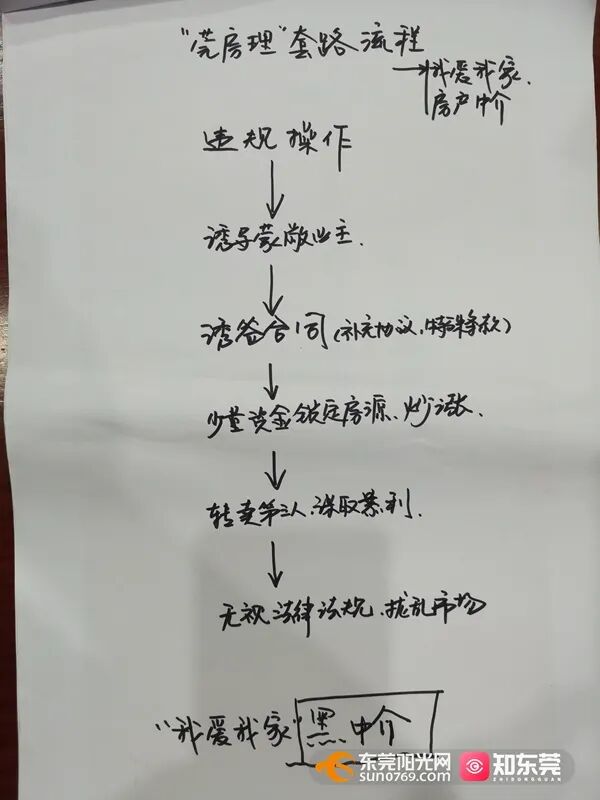 “莞房理”套路流程
我爱我家、
房产中介
违规操作
诱导蒙蔽业主.
诱签合同(补充协议,特殊条款)
少量资金锁定房源、炒涨、
转卖第三人,谋取暴利.
无视法律法规、扰乱市场
“我爱我家”黑中介
东莞阳光网
sun0769.com
知东莞
ZHIDONGGUAN